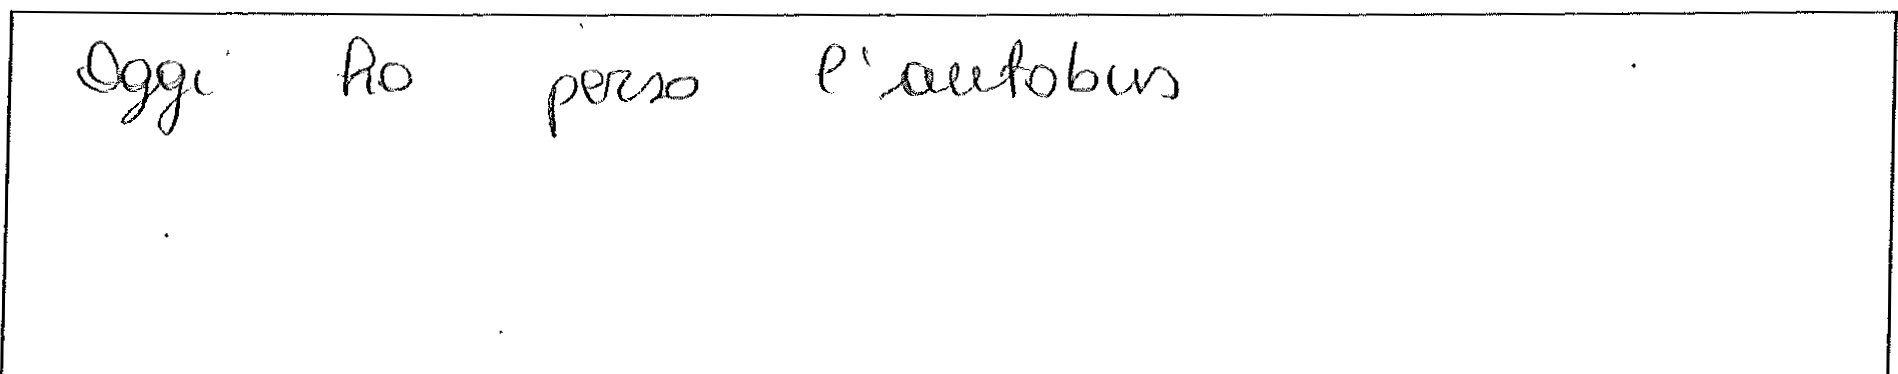 Oggi ho perso l'autobus